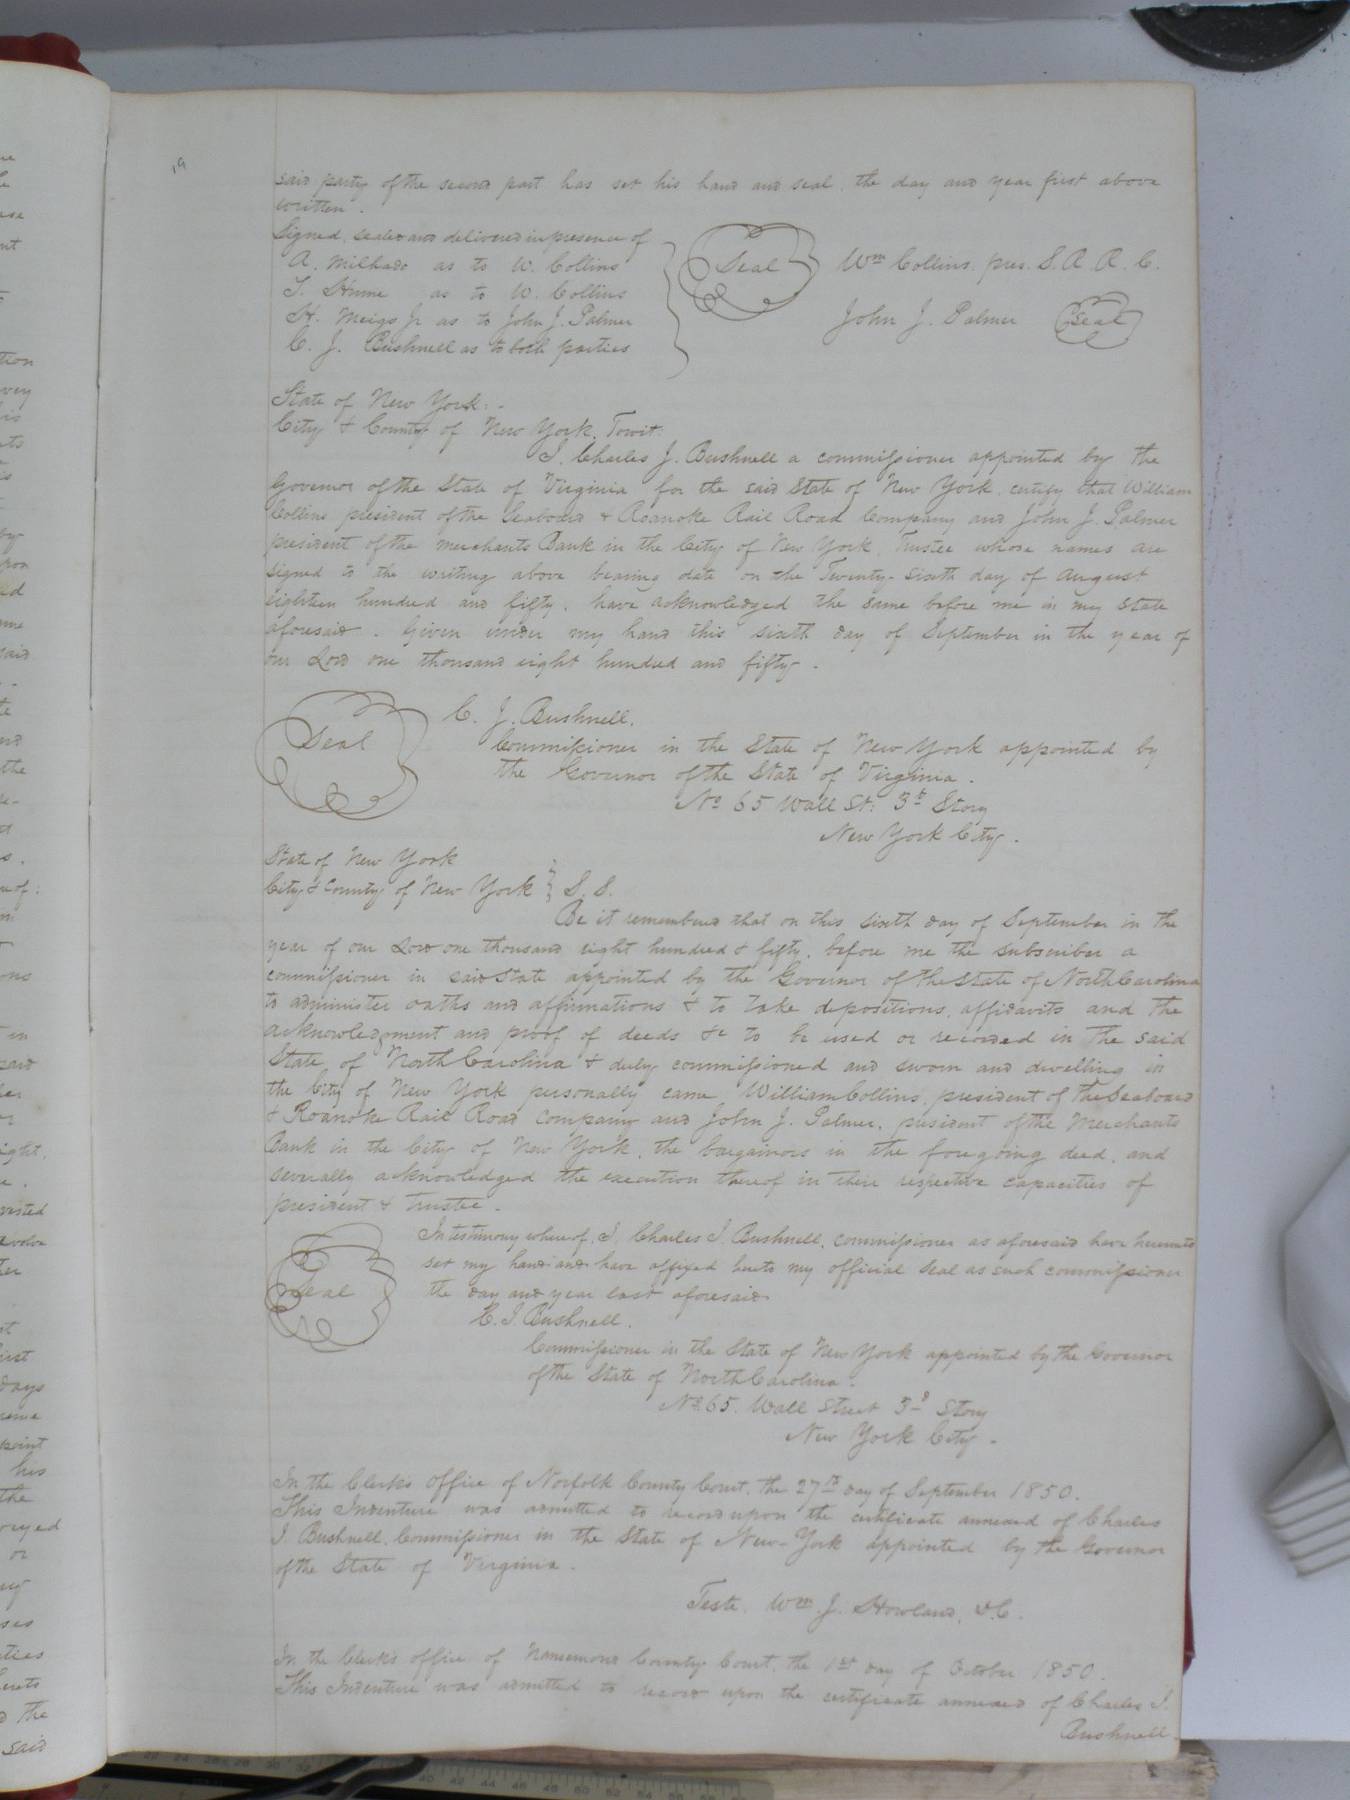 19
said party of the second part has set his hand and seal, the day and year first above
written.
Signed, sealed and delivered in presence of
A. Milhado as to W. Collins
T. Hume as to W. Collins
H. Meigs Jr as to John J. Palmer
C. J. Bushnell as to both parties
Seal Wm Collins, pres. S. & R. R. C.
John J. Palmer Seal
State of New York:-
City & County of New York, Towit:
I, Charles J. Bushnell a commissioner appointed by the
Governor of the State of Virginia for the said State of New York, certify that William
Collins president of the Seaboard & Roanoke Rail Road Company and John J. Palmer
president of the merchants Bank in the City of New York, Trustee whose names are
signed to the writing above bearing date on the Twenty-sixth day of August
eighteen hundred and fifty, have acknowledged the same before me in my state
aforesaid. Given under my hand this sixth day of September in the year of
our Lord one thousand eight hundred and fifty.
Seal C. J. Bushnell,
Commissioner in the State of New York appointed by
the Governor of the State of Virginia.
No 65 Wall St: 3d Story
New York City.
State of New York
City & County of New York } S. S.
Be it remembered that on this sixth day of September in the
year of our Lord one thousand eight hundred & fifty, before me the subscriber a
commissioner in said State appointed by the Governor of the State of North Carolina
to administer oaths and affirmations & to take depositions, affidavits and the
acknowledgment and proof of deeds &c to be used or recorded in the said
State of North Carolina & duly commissioned and sworn and dwelling in
the City of New York personally came, William Collins, president of the Seaboard
& Roanoke Rail Road Company and John J. Palmer, president of the Merchants
Bank in the City of New York, the bargainors in the foregoing deed, and
severally acknowledged the execution thereof in their respective capacities of
president & trustee.
In testimony whereof, I, Charles J. Bushnell, commissioner as aforesaid have hereunto
set my hand and have affixed hereto my official seal as such commissioner
the day and year last aforesaid.
Seal
C. J. Bushnell.
Commissioner in the State of New York appointed by the Governor
of the State of North Carolina.
No 65. Wall Street 3d Story
New York City.
In the Clerks office of Norfolk County Court, the 27th day of September 1850.
This Indenture was admitted to record upon the certificate annexed of Charles
J. Bushnell, Commissioner in the State of New-York appointed by the Governor
of the State of Virginia.
Teste, Wm. J. Howland, d.C.
In the Clerks office of Nansemond County Court, the 1st day of October 1850.
This Indenture was admitted to record upon the certificate annexed of Charles J.
Bushnell